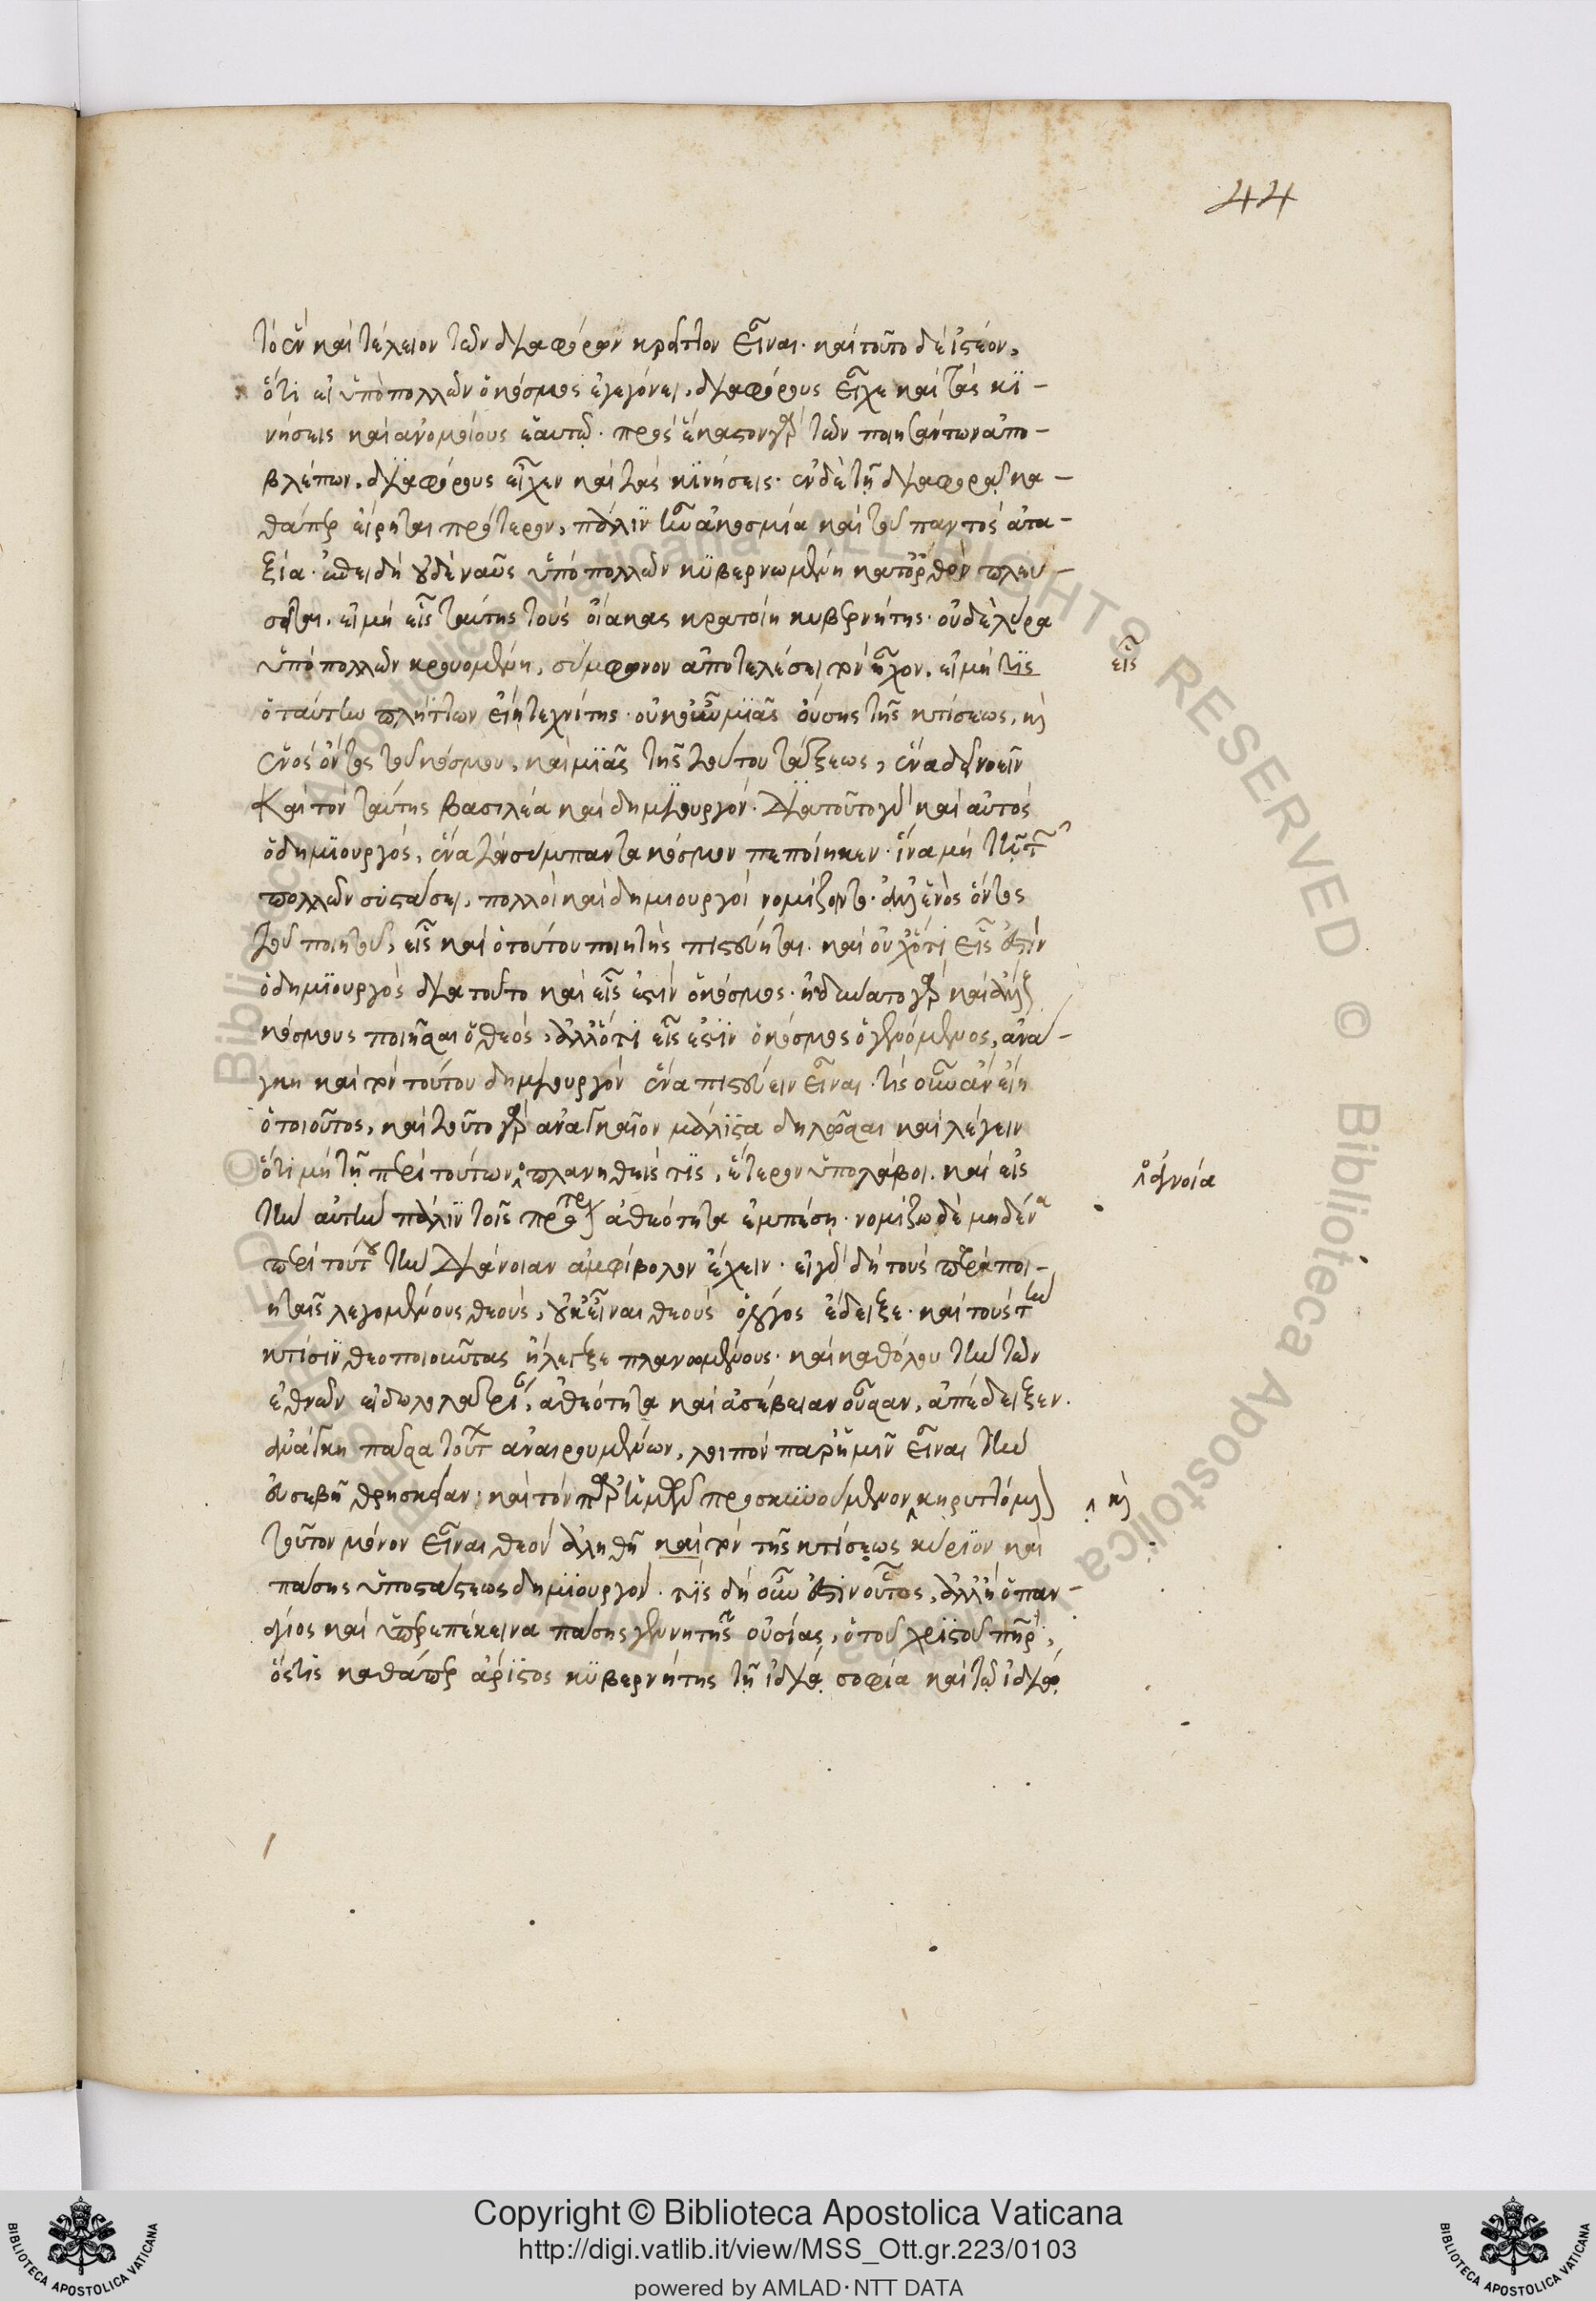 44
τὸ ἓν καὶ τέλειον τῶν διαφόρων κρεῖττον εἶναι· καὶ τοῦτο δὲ ἰστέον,
ὅτι εἰ ὑπὸ πολλῶν ὁ κόσμος ἐγεγόνει, διαφόρους εἶχε καὶ τὰς κι-
νήσεις καὶ ἀνομοίους ἑαυτῷ· πρὸς ἕκαστον γὰρ τῶν ποιησάντων ἀπο-
βλέπων, διαφόρους εἶχεν καὶ τὰς κινήσεις· ἐν δὲ τῇ διαφορᾷ κα-
θάπερ εἴρηται πρότερον, πάλιν ἦν ἀκοσμία καὶ τοῦ παντὸς ἀτα-
ξία· ἐπειδὴ οὐδὲ ναῦς ὑπὸ πολλῶν κυβερνωμένη κατ' ὀρθὸν πλευ-
σεῖται, εἰ μὴ εἷς ταύτης τοὺς οἴακας κρατοίη κυβερνήτης· οὐδὲ λύρα
ὑπὸ πολλῶν κρουομένη, σύμφωνον ἀποτελέσει τὸν ἦχον, εἰ μὴ τὶς
εἷς
ὁ ταύτην πλήττων εἴη τεχνίτης· οὐκοῦν μιᾶς οὔσης τῆς κτίσεως, καὶ
ἑνὸς ὄντος τοῦ κόσμου, καὶ μιᾶς τῆς τούτου τάξεως, ἕνα δεῖ νοεῖν
καὶ τὸν ταύτης βασιλέα καὶ δημιουργόν· διὰ τοῦτο γὰρ καὶ αὐτὸς
ὁ δημιουργὸς, ἕνα τὸν σύμπαντα κόσμον πεποίηκεν· ἵνα μὴ τῇ τῶν
πολλῶν συστάσει, πολλοὶ καὶ δημιουργοὶ νομίζοιντο· ἀλλ' ἑνὸς ὄντος
τοῦ ποιητοῦ, εἷς καὶ ὁ τούτου ποιητὴς πιστεύηται. καὶ οὐχ ὅτι εἷς ἐστιν
ὁ δημιουργὸς διὰ τοῦτο καὶ εἷς ἐστὶν ὁ κόσμος· ἠδύνατο γὰρ καὶ ἄλλους
κόσμους ποιῆσαι ὁ θεὸς, ἀλλ' ὅτι εἷς ἐστὶν ὁ κόσμος ὁ γενόμενος, ἀνά-
γκη καὶ τὸν τούτου δημιουργὸν ἕνα πιστεύειν εἶναι. τίς οὖν ἂν εἴη
ὁ τοιοῦτος, καὶ τοῦτο γὰρ ἀναγκαῖον μάλιστα δηλῶσαι καὶ λέγειν
ὅτι μὴ τῇ περὶ τούτων ‸ πλανηθεὶς τὶς, ἕτερον ὑπολάβοι. καὶ εἰς
‸ ἀγνοία
τὴν αὐτὴν πάλιν τοῖς πρότερον ἀθεότητα ἐμπέσῃ· νομίζω δὲ μηδένα
περὶ τούτου τὴν διάνοιαν ἀμφίβολον ἔχειν· εἰ γὰρ δὴ τοὺς παρὰ ποι-
ηταῖς λεγομένους θεοὺς, οὐκ εἶναι θεοὺς ὁ λόγος ἔδειξε· καὶ τοὺς τὴν
κτίσιν θεοποιοῦντας ἤλεγξε πλανωμένους· καὶ καθόλου τὴν τῶν
ἐθνῶν εἰδωλολατρίαν, ἀθεότητα καὶ ἀσέβειαν οὖσαν, ἀπέδειξεν.
ἀνάγκη πᾶσα τούτων ἀναιρουμένων, λοιπὸν παρ' ἡμῖν εἶναι τὴν
εὐσεβῆ θρησκείαν· καὶ τὸν παρ' ἡμῶν προσκυνούμενον ‸ κηρυττόμενον
‸ καὶ
τοῦτον μόνον εἶναι θεὸν ἀληθῆ καὶ τὸν τῆς κτίσεως κύριον καὶ
πάσης ὑποστάσεως δημιουργόν. τίς δὴ οὖν ἐστὶν οὗτος, ἀλλ' ἢ ὁ παν-
άγιος καὶ ὑπερεπέκεινα πάσης γενητῆς οὐσίας, ὁ τοῦ χριστοῦ πατήρ,
ὅστις καθάπερ ἄριστος κυβερνήτης τῇ ἰδίᾳ σοφίᾳ καὶ τῷ ἰδίῳ
Copyright © Biblioteca Apostolica Vaticana
http://digi.vatlib.it/view/MSS_Ott.gr.223/0103
powered by AMLAD·NTT DATA